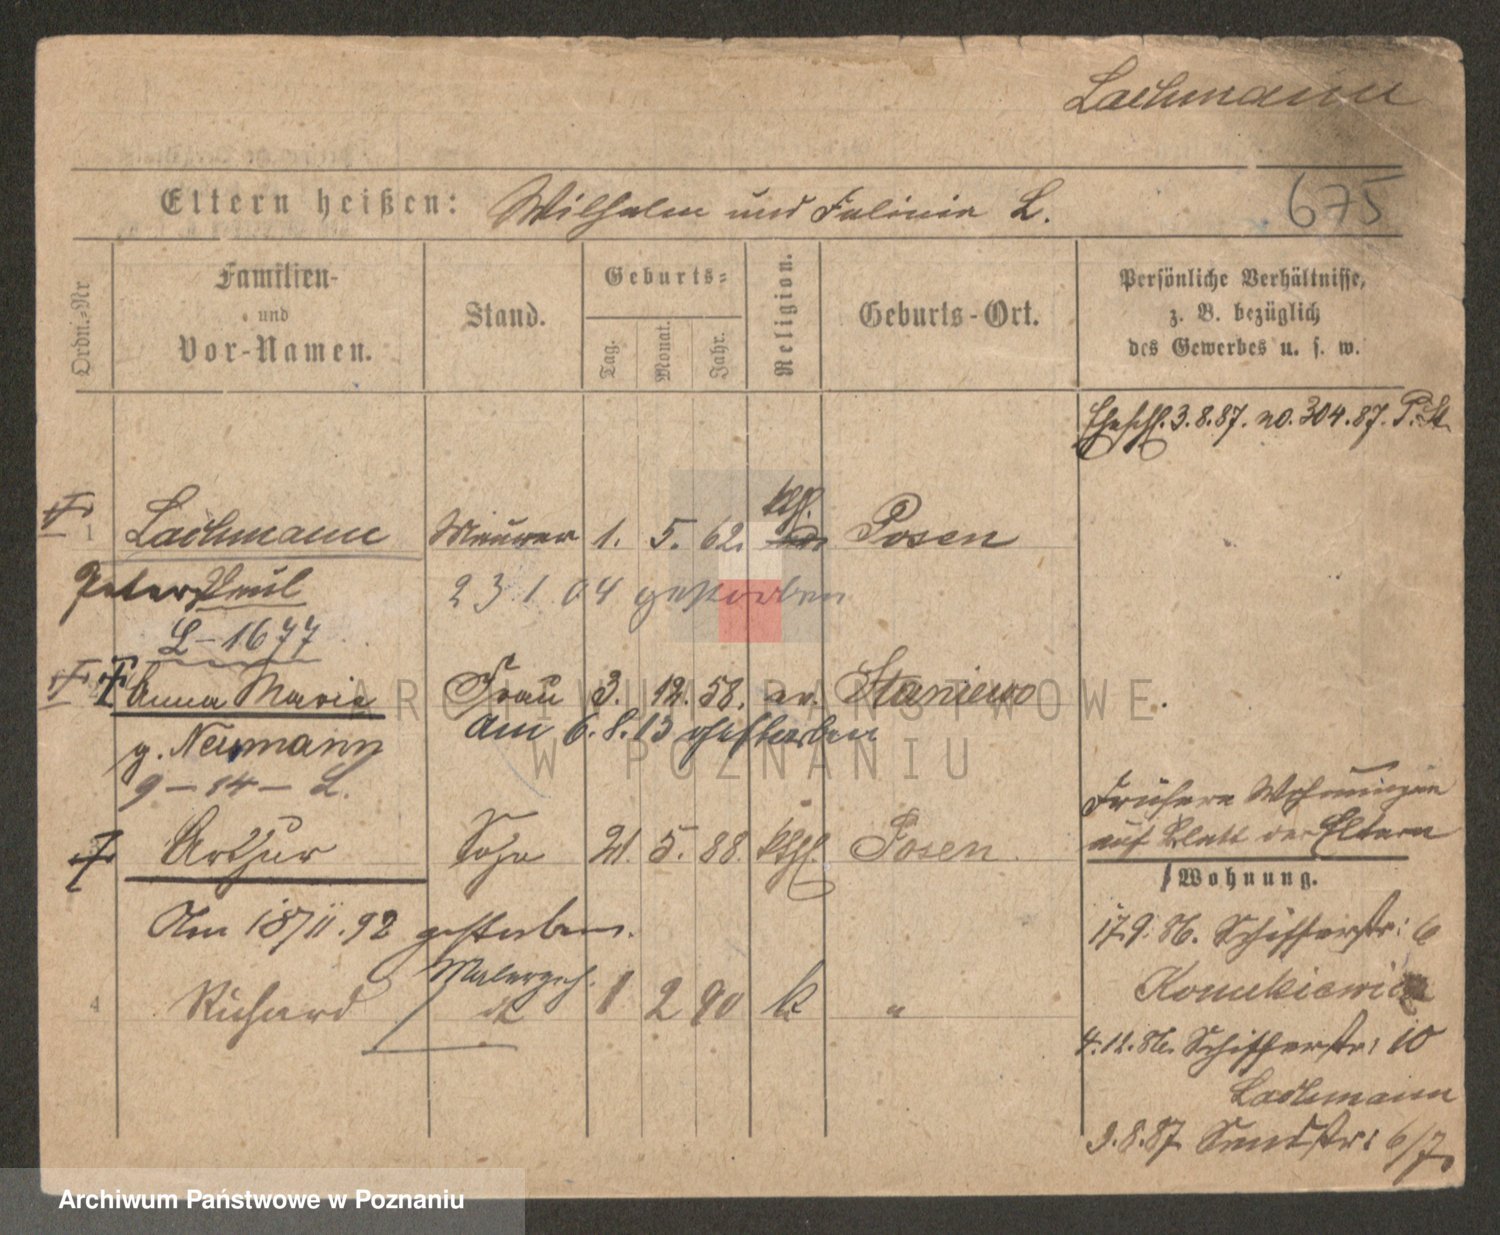 Lachmann
Eltern heißen: Wilhelm und L.
675
Ordn.-Nr.
Familien- und Vor-Namen.
Stand.
Geburts-
Tag. Monat. Jahr.
Religion.
Geburts-Ort.
Persönliche Verhältnisse,
z. B. bezüglich
des Gewerbes u. s. w.
Eheschl. 3.8.87. no. 304.87. P. St.
kth.
1 Lachmann Maurer 1. 5. 62. Posen
Peter Paul 23.1.04 gestorben
L-1677
Anna Marie Frau 3. 12. 58. ev. Staniewo
am 6.8.13 gestorben
g. Neumann
9-14-L.
Frühere Wohnungen
auf Blatt der Eltern
Arthur Sohn 21. 5. 88. kthl. Posen.
Wohnung.
Am 18/11.92 gestorben.
17.9.86. Schifferstr: 6
Malergeh.
4 Richard 1 2 90 k "
4.12.86. Schifferstr: 10
Lachmann
3.8.87. Sandstr: 6/7.
ARCHIWUM PAŃSTWOWE
W POZNANIU
Archiwum Państwowe w Poznaniu